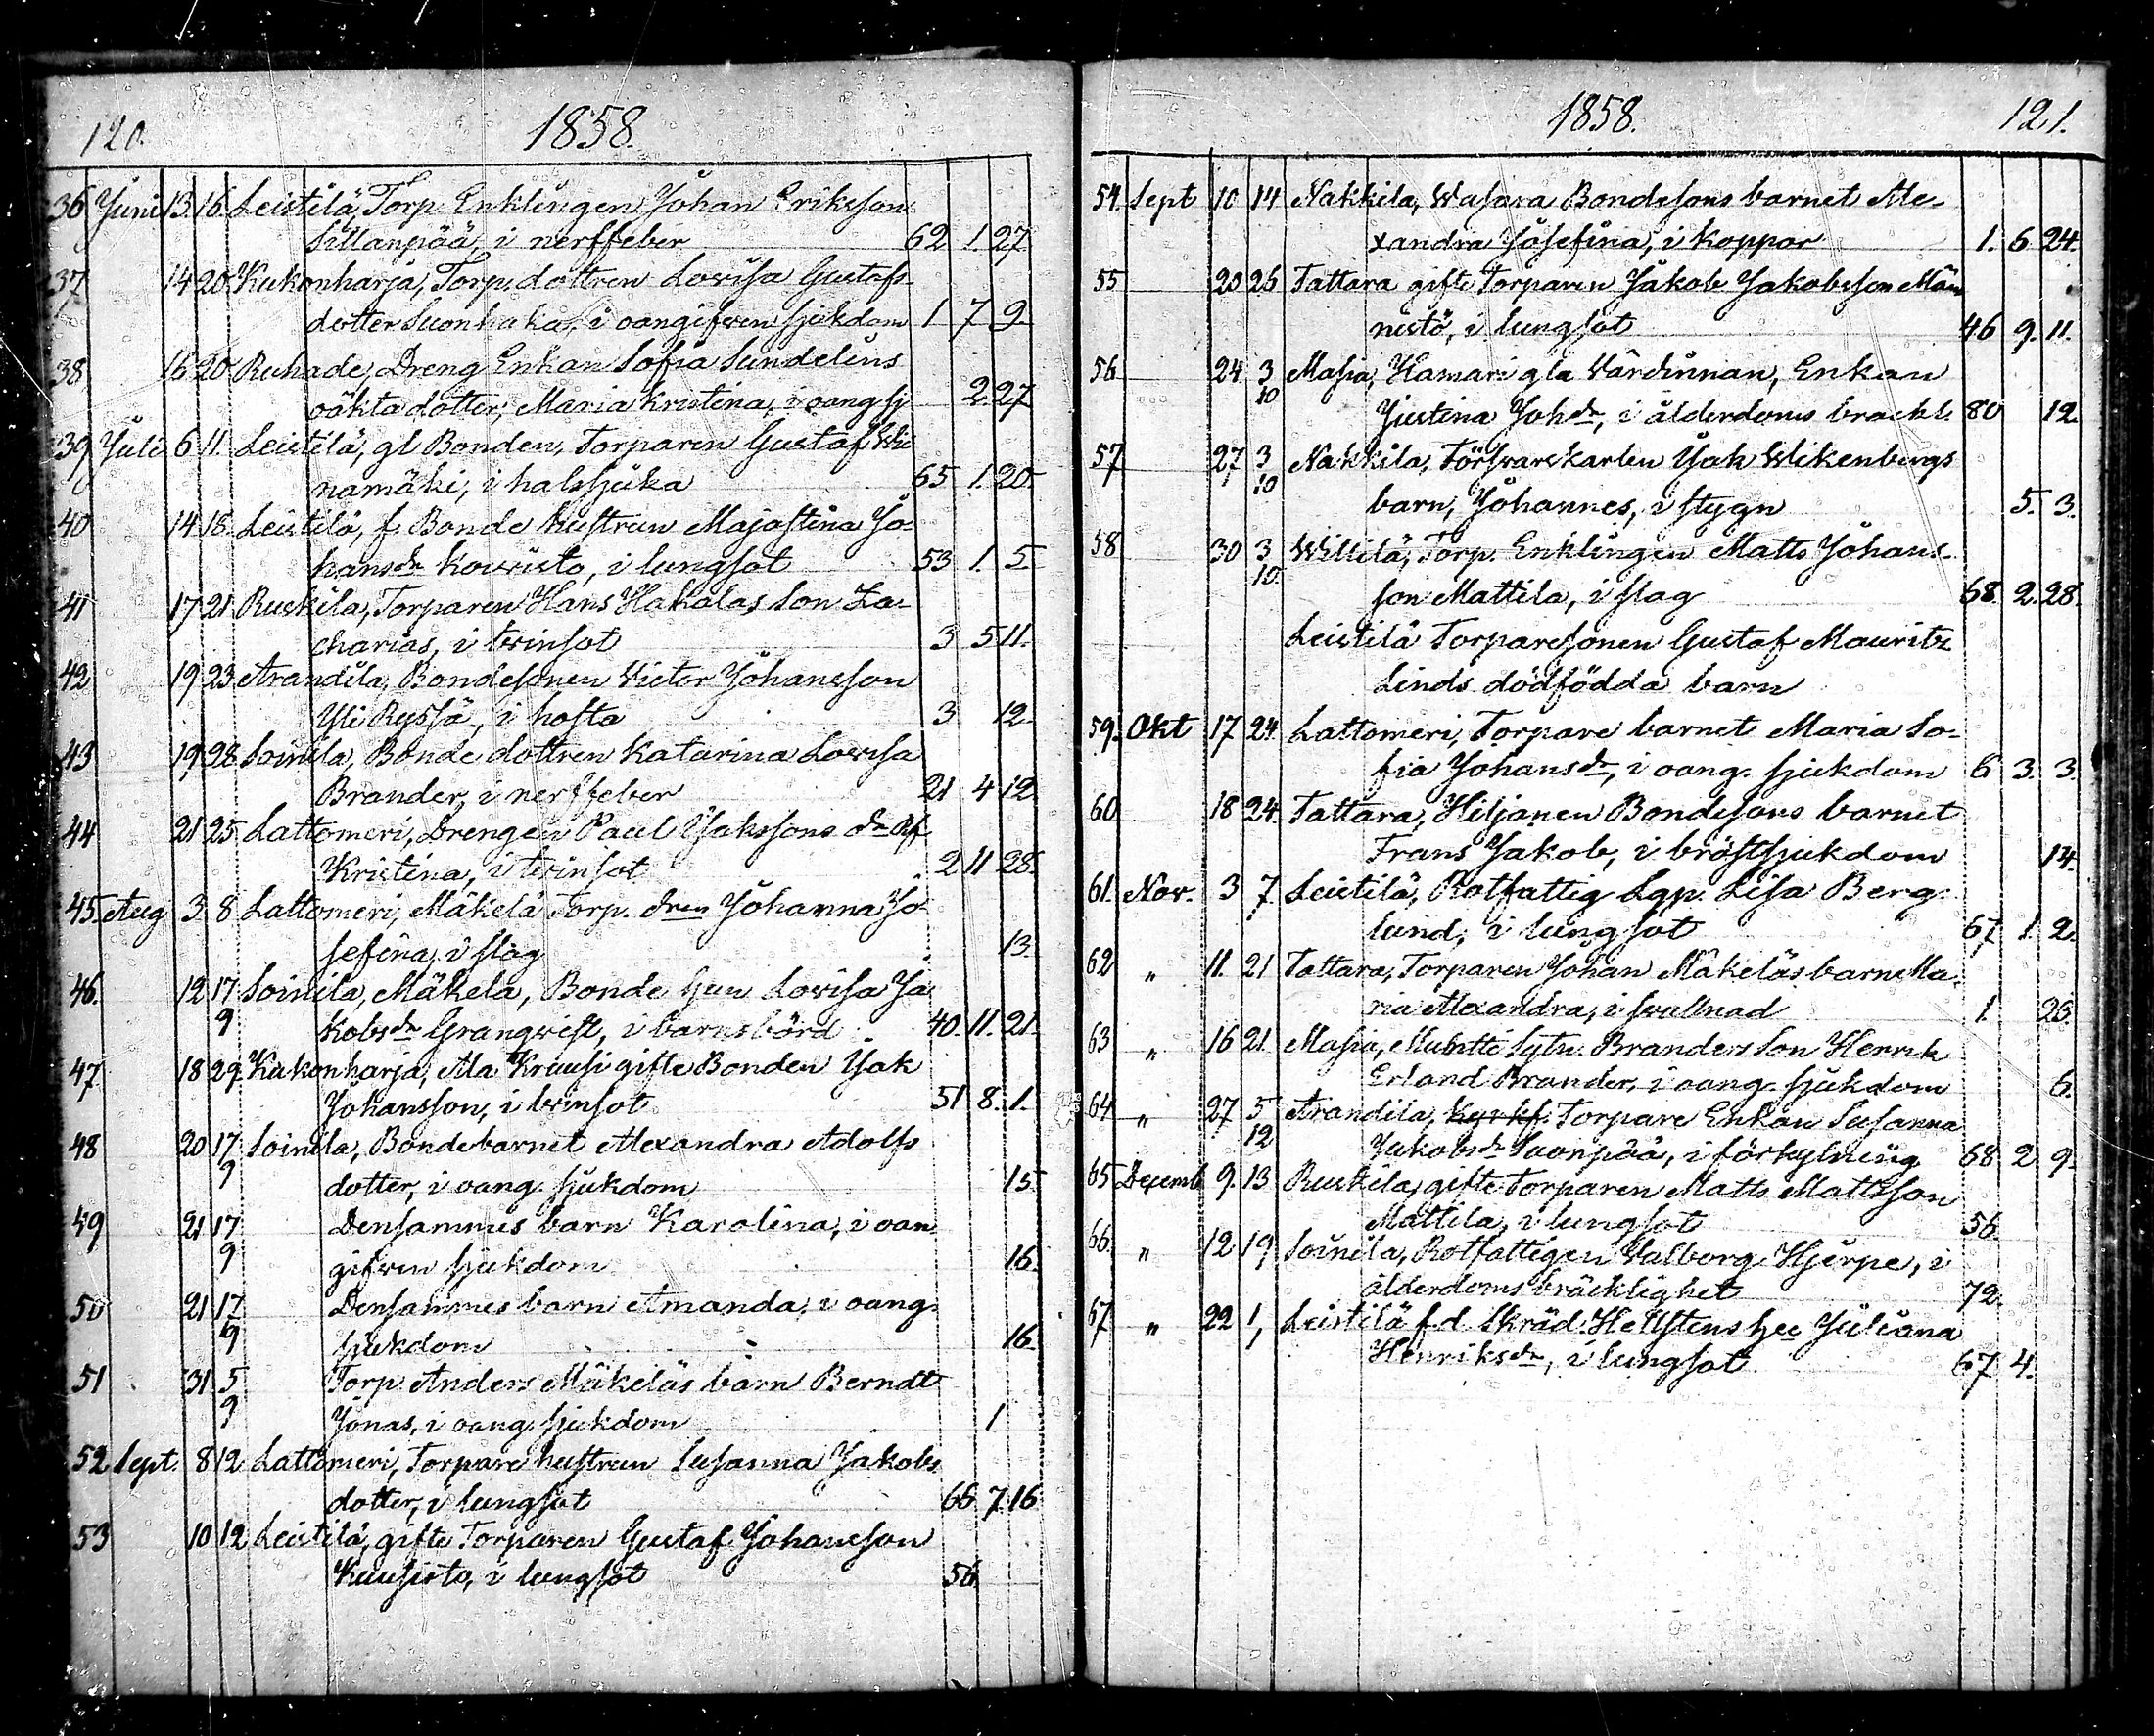 120. 1858.
36 Juni 13 16 Leistilä, Torp. Enklingen Johan Eriksson
Sillanpää, i nerffeber 62 1. 27.
37 14 20 Kukonharja, Torp. dottren Lovisa Gustafs
dotter Suonhaka, i oangifven sjukdom 1 7 9.
38 16 20 Ruhade, Dreng Enkan Sofia Sundelins
oäkta dotter, Maria Kristina, i oang sj 2. 27
39 Juli 6 11. Leistilä, gl Bonden, Torparen Gustaf Wii
namäki, i halssjuka 65 1. 20.
40 14 18. Leistilä, f. Bonde hustrun Majastina Jo-
hansdr Kovristo, i lungsot 53 1. 5.
41 17 21 Ruskila, Torparen Hans Hakalas Son Za-
charias, i tvinsot 3 5 11.
42 19 23 Arandila, Bondesonen Victor Johansson
Yli Ryssä, i hosta 3 12.
43 19 28 Soinila, Bonde dottren Katarina Lovisa
Brander, i nerffeber 21 4 12
44 21 25 Lattomeri, Drengen Paul Isakssons dr
Kristina, i tvinsot 2 11 28.
45. Aug 3 8 Lattomeri, Mäkelä Torp. dren Johanna Jo-
sefina, i slag 13.
46. 12 17 Soinila, Mäkelä, Bonde hun Lovisa Ja
9 kobsdr Granqvist, i barnsbörd 40. 11. 21.
47 18 29 Kukonharja, Ala Krausi gifte Bonden Isak
Johansson, i tvinsot 51 8. 1.
48 20 17 Soinila, Bondebarnet Alexandra Adolfs
9 dotter, i oang. sjukdom 15.
49 21 17 Densammes barn Karolina, i oan
9 gifven sjukdom 16.
50 21 17 Densammes barn Amanda, i oang.
9 sjukdom 16.
51 31 5 Torp. Anders Mäkeläs barn Berndt
9 Jonas, i oang. sjukdom 1
52 Sept. 8 12 Lattomeri, Torpare hustrun Susanna Jakobs
dotter, i lungsot 66 7. 16
53 10 12 Leistilä, gifte Torparen Gustaf Johansson
Kuusisto, i lungsot 56.
1858. 121.
54. Sept 10 14 Nakkila, Wasara Bondesons barnet Ale-
xandra Josefina, i koppor 1. 6 24.
55 20 26 Tattara gifte Torparen Jakob Jakobsson Män
nistö, i lungsot 46 9. 11.
56 24 3 Masia, Hamari gla Värdinnan, Enkan
10 Justina Johdr, i ålderdoms brackl. 80 12.
57 27 3 Nakkila, Försvarskarlen Isak Wikenbergs
10 barn, Johannes, i stygn 5. 3.
58 30 3 Willilä, Torp. Enklingen Matts Johans-
10. son Mattila, i slag 68. 2. 28.
Leistilä Torparesonen Gustaf Mauritz
Linds dödfödda barn
59. Okt 17 24. Lattomeri, Torpare barnet Maria So-
fia Johansdr, i oang. sjukdom 6 3. 3.
60 18 24. Tattara, Hiljanen Bondesons barnet
Frans Jakob, i bröstsjukdom 14.
61. Nov. 3 7. Leistilä, Rotfattig Lgp. Lisa Berg-
lund, i lungsot 67 1. 2.
62 " 11. 21 Tattara, Torparen Johan Mäkeläs barn Ma-
ria Alexandra, i svullnad 1. 26.
63 " 16 21. Masia, Sytn. Branders Son Henrik
Erland Brander, i oang. sjukdom 6.
64 " 27 5 Arandila, Torpare Enkan Susanna
12 Jakobsdr Suonpää, i förkylning 68 2 9.
65 Decemb 9. 13 Ruskila, gifte Torparen Matts Mattsson
Mattila, i lungsot 56
66. " 12 19 Soinila, Rotfattigen Walborg Hjerpe, i
ålderdoms bräcklighet 72.
67 " 22 1, Leistilä f.d. Skräd. Hellstens hu Juliana
Henriksdr, i lungsot 67 4.